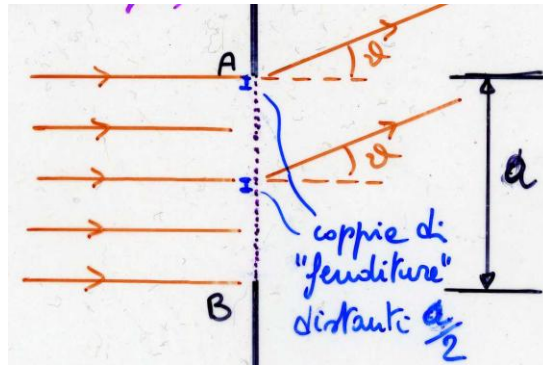 A
ϑ
ϑ
a
B
coppie di
"fenditure"
distanti a/2